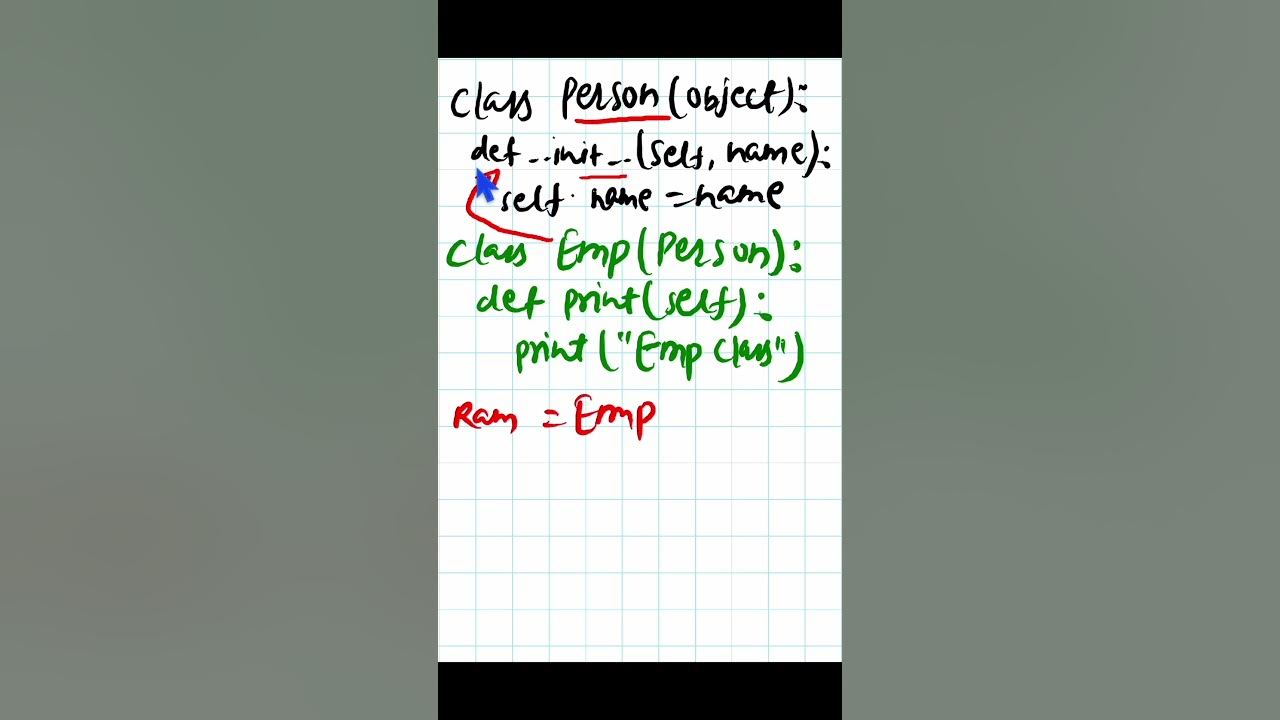 class Person(object):
def __init__(self, name):
self. name = name
class Emp(Person):
def print(self):
print("Emp class")
Ram = Emp